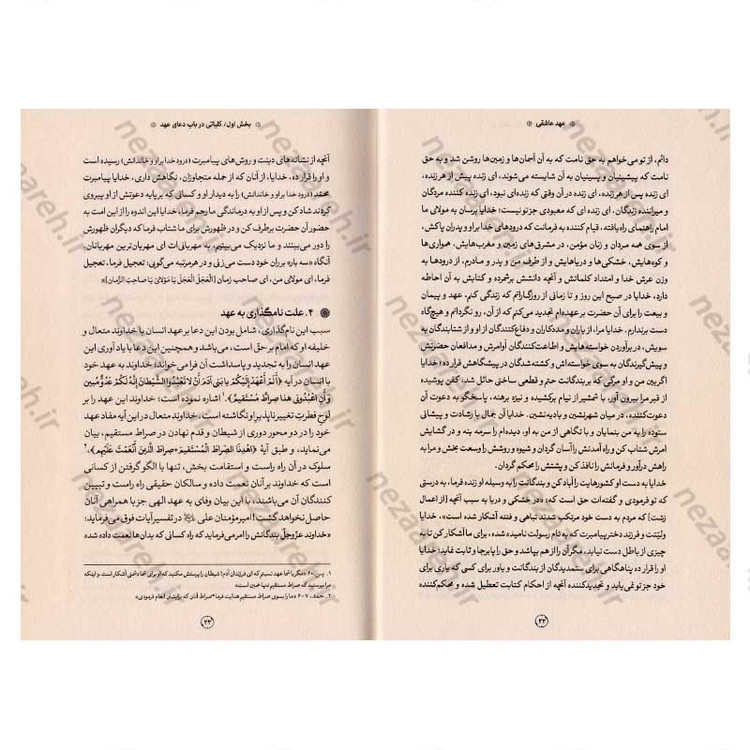 ❊ عهد عاشقی ❊
دائم، از تو می‌خواهم به حق نامت که به آن آسمان‌ها و زمین‌ها روشن شد و به حق
نامت که پیشینیان و پسینیان به آن شایسته می‌شوند. ای زنده پیش از هر زنده،
ای زنده پس از هر زنده، ای زنده در آن وقتی که زنده‌ای نبود، ای زنده کننده مردگان
و میراننده زندگان، ای زنده ای که معبودی جز تو نیست؛ خدایا برسان به مولای ما
امام راهنمای راه‌یافته، قیام کننده به فرمانت که درودهای خدا بر او و پدران پاکش،
از سوی همه مردان و زنان مؤمن، در مشرق‌های زمین و مغرب‌هایش، همواری‌ها
و کوه‌هایش، خشکی‌ها و دریاهایش و از طرف من و پدر و مادرم، از درودها به
وزن عرش خدا و امتداد کلماتش و آنچه دانشش برشمرده و کتابش به آن احاطه
دارد. خدایا در صبح این روز و تا زمانی از روزگارانم که زندگی کنم، عهد و پیمان
و بیعت را برای آن حضرت بر عهده‌ام تجدید می‌کنم که از آن، رو نگردانم و هیچگاه
دست برندارم. خدایا مرا، از یاران و مددکاران و دفاع‌کنندگان از او و از شتابندگان به
سویش، در برآوردن خواسته‌هایش و اطاعت‌کنندگان اوامرش و مدافعان حضرتش
و پیش‌گیرندگان به سوی خواسته‌اش و کشته‌شدگان در پیشگاهش قرار ده. خدایا
اگر بین من و او مرگی که بر بندگانت حتم و قطعی ساختی حائل شد، کفن پوشیده
از قبر مرا بیرون آور، با شمشیر از نیام برکشیده و نیزه برهنه، پاسخگو به دعوت آن
دعوت‌کننده، در میان شهرنشین و بادیه نشین. خدایا آن جمال با رشادت و پیشانی
ستوده را به من بنمایان و با نگاهی از من به او، دیده‌ام را سرمه بنه و در گشایش
امرش شتاب کن و راه آمدنش را آسان گردان و شیوه و روشش را وسعت بخش و مرا به
راهش درآور و فرمانش را نافذ کن و پشتش را محکم گردان.
خدایا به دست او کشورهایت را آباد کن و بندگانت را به وسیله او زنده فرما، به درستی
که تو فرمودی و گفته‌ات حق است که: «در خشکی و دریا به سبب آنچه [از اعمال
زشت] که مردم به دست خود مرتکب شدند تباهی و فتنه آشکار شده است». خدایا
ولیّ‌ت و فرزند دختر پیامبرت که به نام رسولت نامیده شده، برای ما آشکار کن تا به
چیزی از باطل دست نیابد، مگر آن را از هم بپاشد و حق را پابرجا و ثابت نماید. خدایا
او را قرار ده پناهگاهی برای ستمدیدگان از بندگانت و یاور برای کسی که یاری برای
خود جز تو نمی‌یابد و تجدیدکننده آنچه از احکام کتابت تعطیل شده و محکم‌کننده
۲۲
❊ بخش اول/ کلیاتی در باب دعای عهد ❊
آنچه از نشانه های دینت و روش‌های پیامبرت (درود خدا بر او و خاندانش) رسیده است
و او را قرار ده، خدایا، از آنان که از حمله متجاوزان، نگاهش داری. خدایا پیامبرت
محمّد (درود خدا بر او و خاندانش) را به دیدار او و کسانی که بر پایه دعوتش از او پیروی
کردند شاد کن و پس از او به درماندگی ما رحم فرما، خدایا این اندوه را از این امت به
حضور آن حضرت برطرف کن و در ظهورش برای ما شتاب فرما که دیگران ظهورش
را دور می‌بینند و ما نزدیک می‌بینیم، به مهربانی‌ات ای مهربان‌ترین مهربانان.
آنگاه «سه بار» بر ران خود دست می‌زنی و در هر مرتبه می‌گویی: تعجیل فرما، تعجیل
فرما، ای مولای من، ای صاحب زمان [اَلْعَجَلَ الْعَجَلَ یا مَوْلایَ یا صاحِبَ الزَّمانِ]»
۴. علت نامگذاری به عهد
سبب این نام‌گذاری، شامل بودن این دعا بر عهد انسان با خداوند متعال و
خلیفه او که امام بر حقّ است، می‌باشد و همچنین این دعا با یاد آوری این
عهد انسان را به تجدید و پاسداشت آن فرامی‌خواند؛ خداوند به عهد خود
با انسان در آیه ﴿أَلَمْ أَعْهَدْ إِلَیْکُمْ یا بَنِی آدَمَ أَنْ لا تَعْبُدُوا الشَّیْطانَ إِنَّهُ لَکُمْ عَدُوٌّ مُبِینٌ
وَ أَنِ اعْبُدُونِی هذا صِراطٌ مُسْتَقِیمٌ﴾،۱ اشاره نموده است؛ خداوند این عهد را بر
لوحِ فطرتِ تغییر ناپذیر او نگاشته است. خداوند متعال در این آیه مفاد عهد
خود را در دو محور دوری از شیطان و قدم نهادن در صراط مستقیم، بیان
می‌نماید، و طبق آیهٔ ﴿اهْدِنَا الصِّراطَ الْمُسْتَقِیمَ * صِراطَ الَّذِینَ أَنْعَمْتَ عَلَیْهِمْ﴾،۲
سلوک در آن راه راست و استقامت بخش، تنها با الگو گرفتن از کسانی
است که خداوند بر آنان نعمت داده و سالکان حقیقی راه راست و تبیین
کنندگان آن می‌باشند، با این بیان وفای به عهد الهی جز با همراهی آنان
حاصل نخواهد گشت! امیر مؤمنان علی در تفسیر آیات فوق می‌فرماید:
«خداوند عزّوجلّ بندگانش را امر می‌فرماید که راه کسانی که بدان‌ها نعمت داده شده
۱. یس، ۶۰
۲. حمد، ۶-۷ «ما را بسوی صراط مستقیم هدایت فرما*صراط آنان که برایشان انعام فرمودی»
۲۳
nezaareh.ir